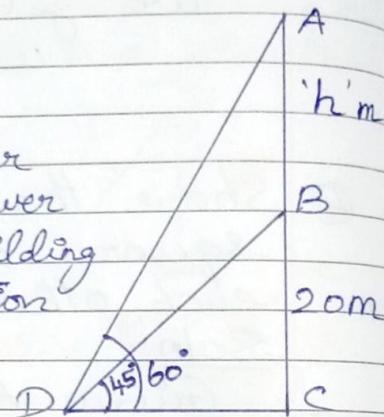 A
'h'm
r
wer
B
ilding
ion
20m
45° 60°
D
C